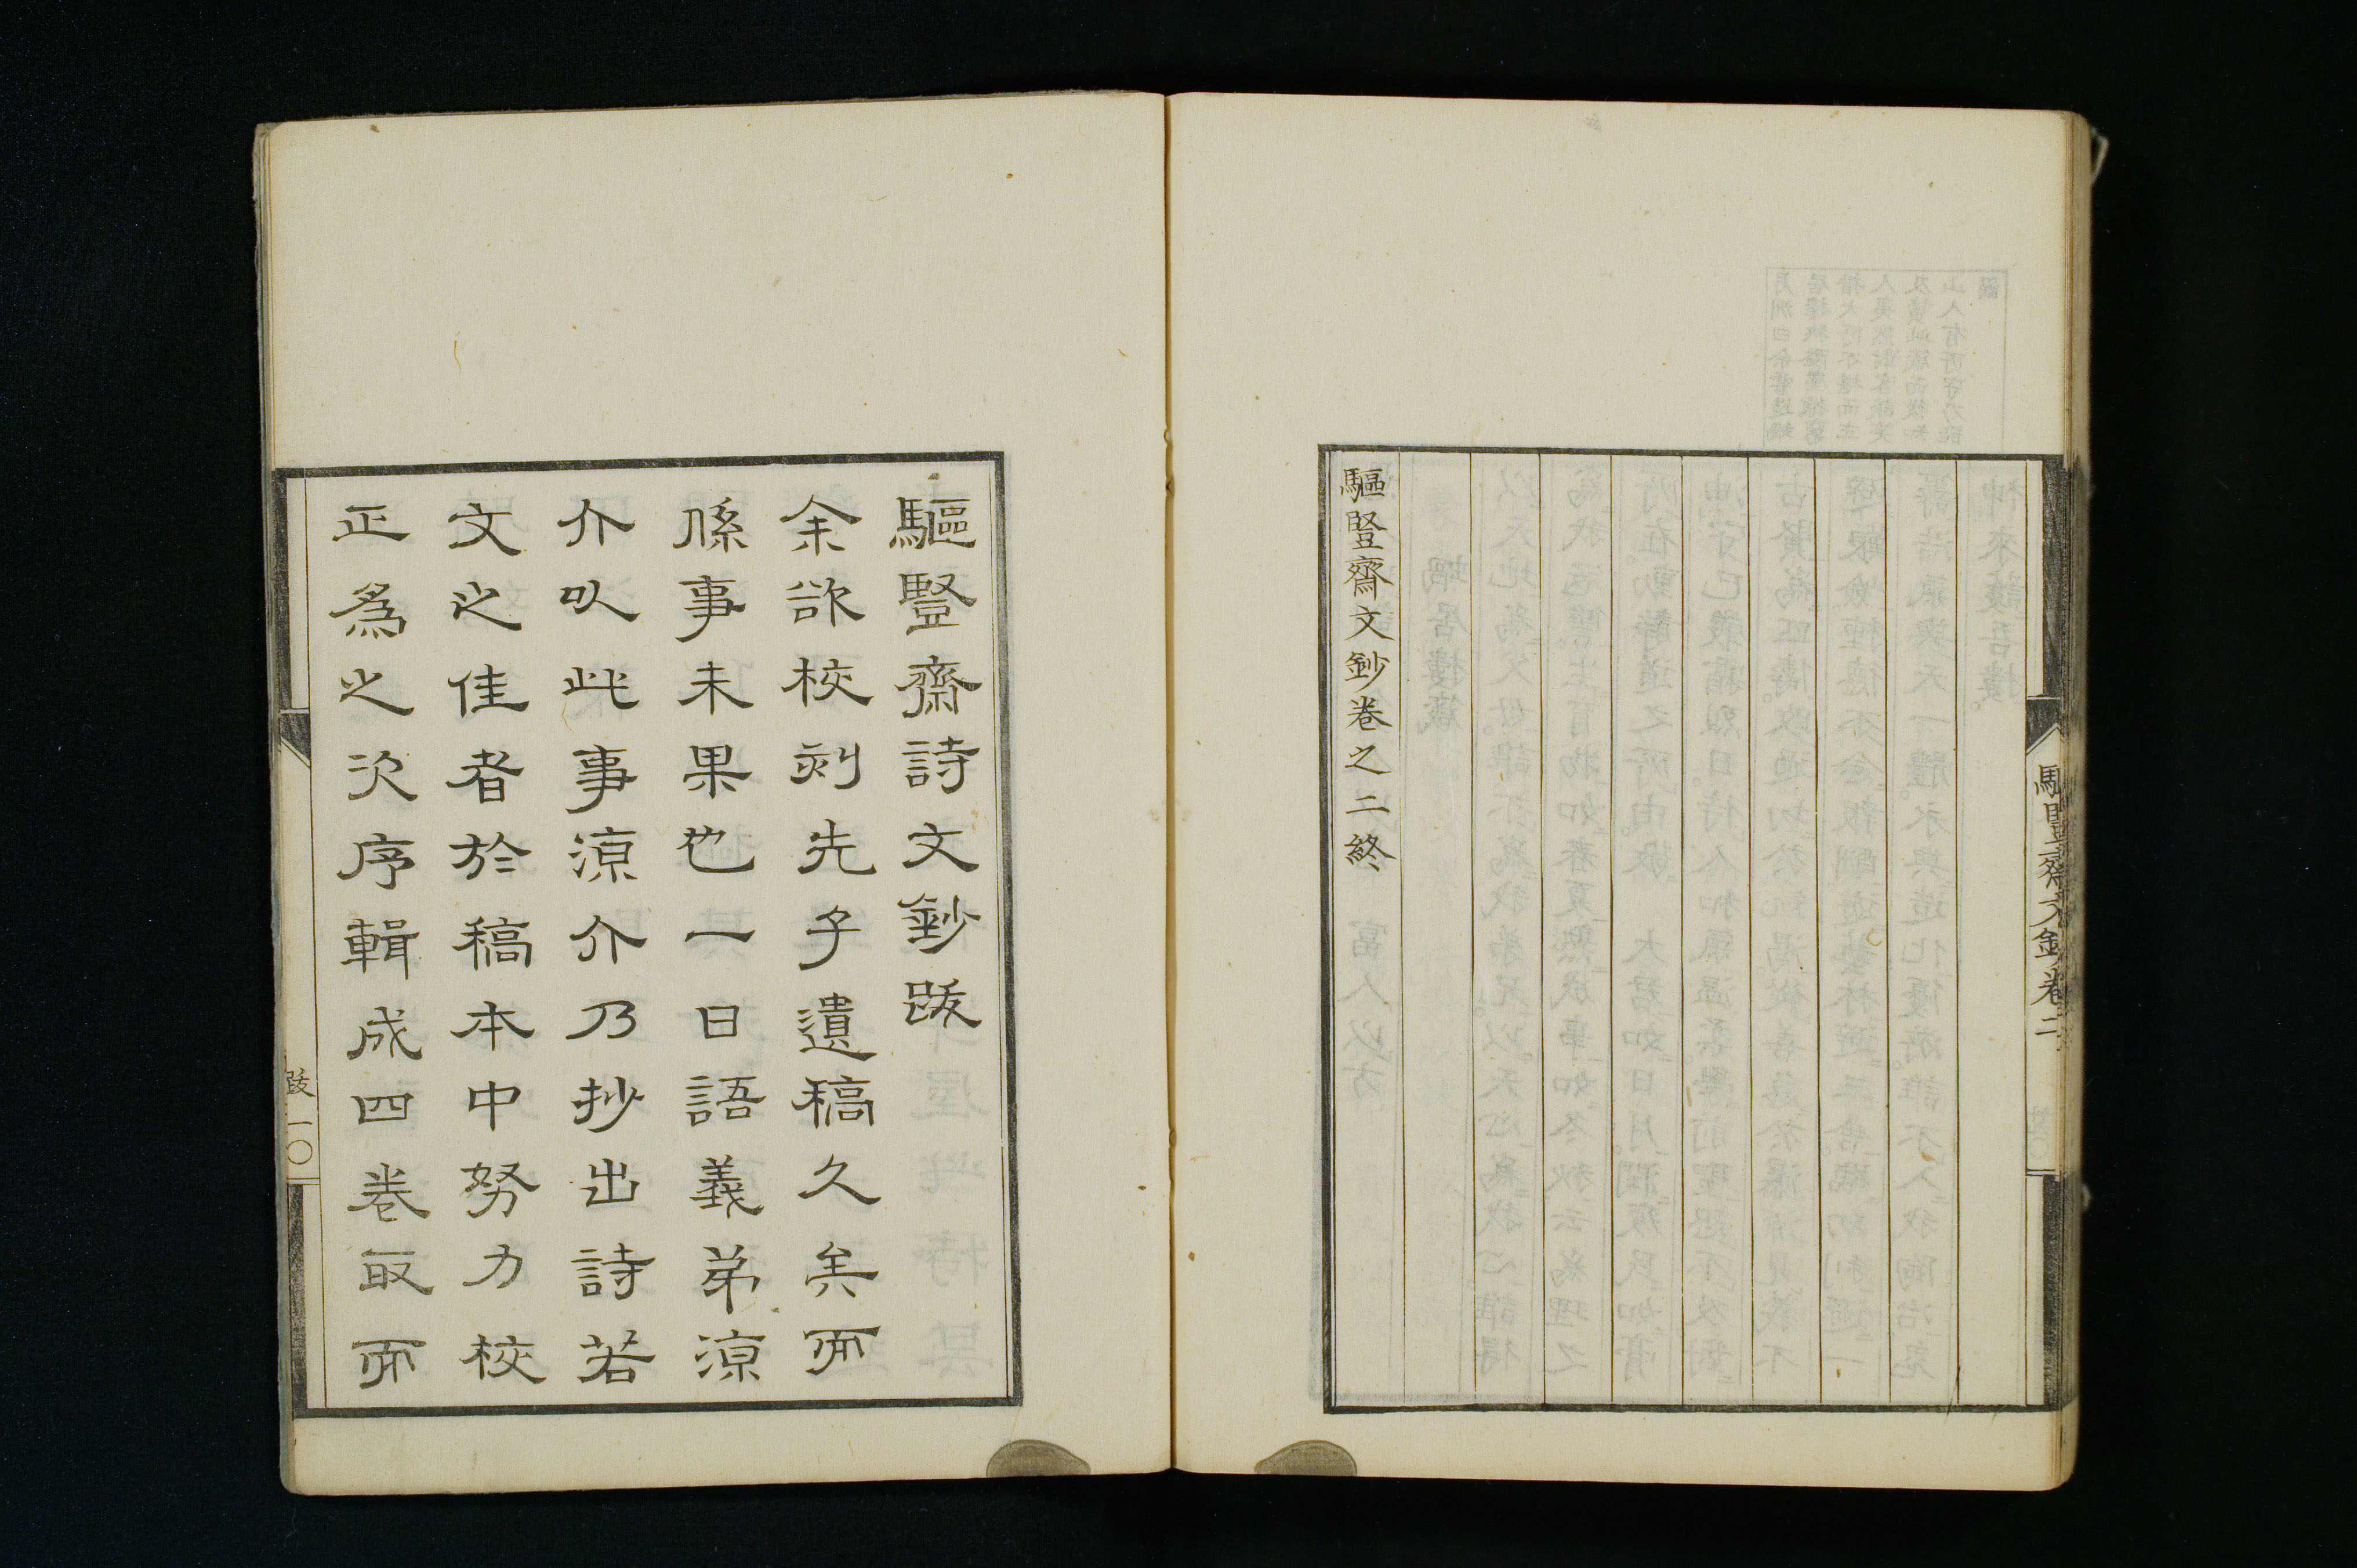 驅豎齋文鈔卷二
驅豎齋文鈔卷之二終
驅豎齋詩文鈔跋
余欲校刻先子遺稿久矣而
係事未果也一日語義弟涼
介以此事涼介乃抄出詩若
文之佳者於稿本中努力校
正爲之次序輯成四卷取而
跋 一〇